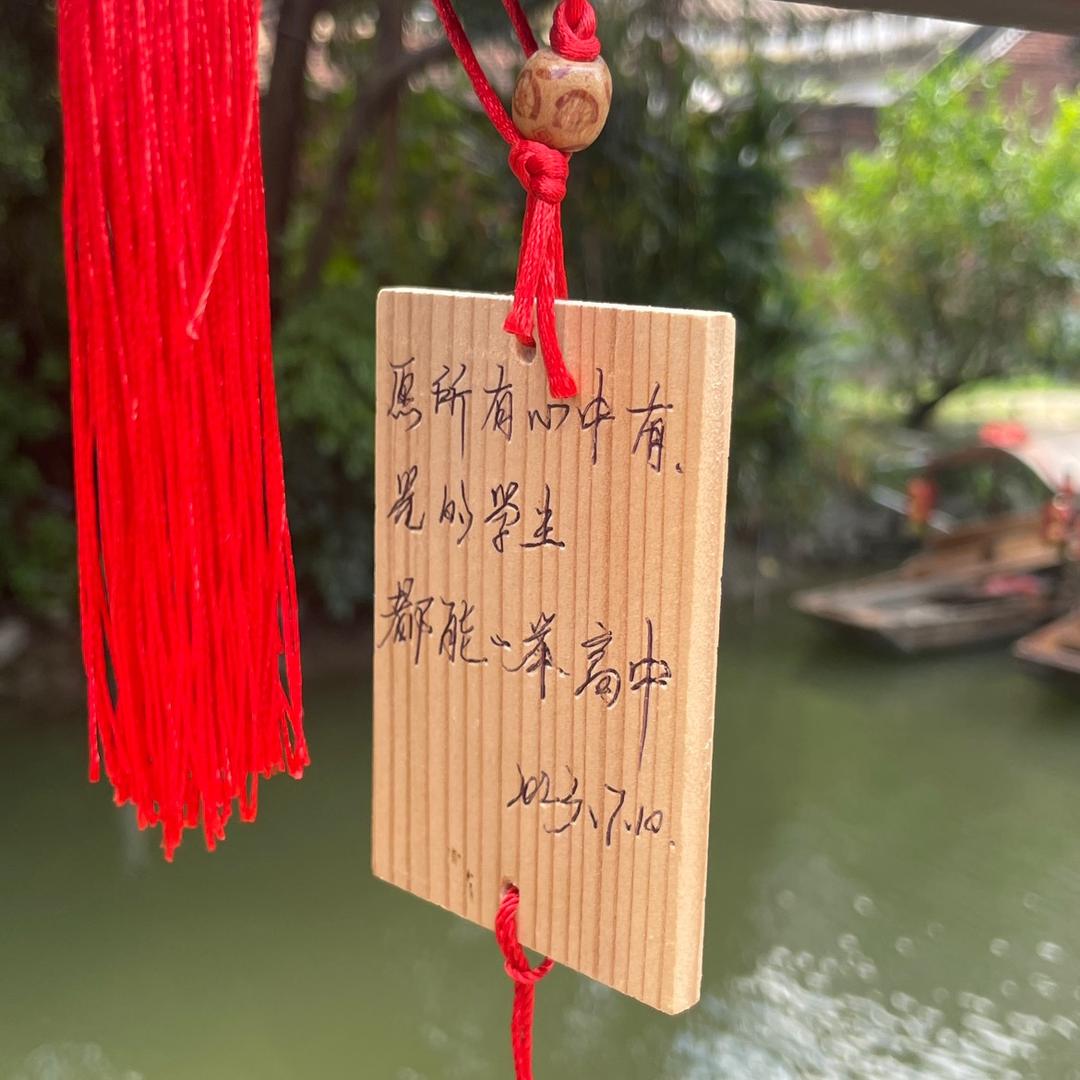 愿所有心中有
光的学生
都能一举高中
2023.7.10.